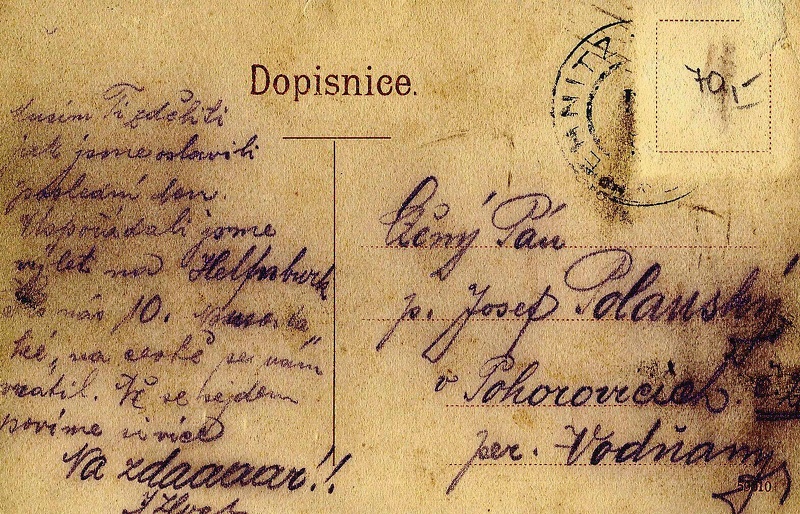 Dopisnice.
70,-
Musím Ti zděliti
jak jsme oslavili
poslední den.
Uspořádali jsme
výlet na Helfnburk
nás 10.
na cestě
vrátil. Až se sejdem
povíme si více
Na zdaaaaar!!
Ctěný Pán
p. Josef Polanský
v Pohorovicích.
per. Vodňany